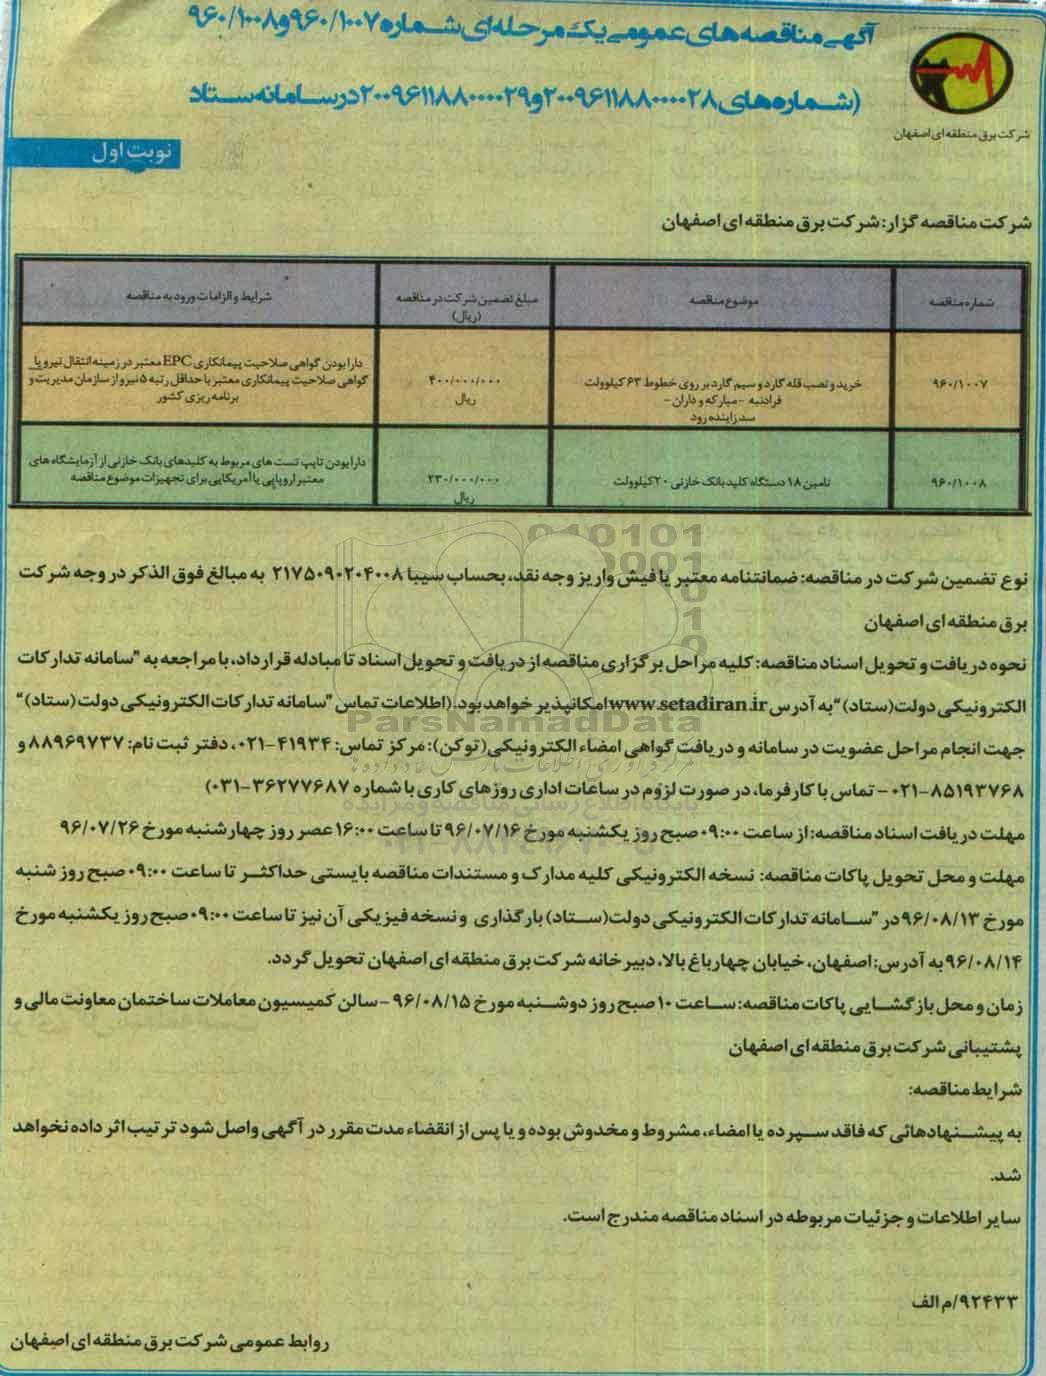 آگهی مناقصه های عمومی یک مرحله ای شماره ۹۶۰/۱۰۰۷ و ۹۶۰/۱۰۰۸
(شماره های ۲۰۰۹۶۱۱۸۸۰۰۰۰۲۸ و ۲۰۰۹۶۱۱۸۸۰۰۰۰۲۹ در سامانه ستاد
شرکت برق منطقه ای اصفهان
نوبت اول
شرکت مناقصه گزار: شرکت برق منطقه ای اصفهان
شماره مناقصه
موضوع مناقصه
مبلغ تضمین شرکت در مناقصه
(ریال)
شرایط و الزامات ورود به مناقصه
۹۶۰/۱۰۰۷
خرید و نصب قله گارد و سیم گارد بر روی خطوط ۶۳ کیلوولت
فرادنبه - مبارکه و داران -
سد زاینده رود
۴۰۰/۰۰۰/۰۰۰
ریال
دارا بودن گواهی صلاحیت پیمانکاری EPC معتبر در زمینه انتقال نیرو یا
گواهی صلاحیت پیمانکاری معتبر با حداقل رتبه ۵ نیرو از سازمان مدیریت و
برنامه ریزی کشور
۹۶۰/۱۰۰۸
تامین ۱۸ دستگاه کلید بانک خازنی ۲۰ کیلوولت
۲۳۰/۰۰۰/۰۰۰
ریال
دارا بودن تایپ تست های مربوط به کلیدهای بانک خازنی از آزمایشگاه های
معتبر اروپایی یا آمریکایی برای تجهیزات موضوع مناقصه
نوع تضمین شرکت در مناقصه: ضمانتنامه معتبر یا فیش واریز وجه نقد، بحساب سیبا ۲۱۷۵۰۹۰۲۰۴۰۰۸ به مبالغ فوق الذکر در وجه شرکت
برق منطقه ای اصفهان
نحوه دریافت و تحویل اسناد مناقصه: کلیه مراحل برگزاری مناقصه از دریافت و تحویل اسناد تا مبادله قرارداد، با مراجعه به "سامانه تدارکات
الکترونیکی دولت (ستاد)" به آدرس www.setadiran.ir امکانپذیر خواهد بود. (اطلاعات تماس "سامانه تدارکات الکترونیکی دولت (ستاد)"
جهت انجام مراحل عضویت در سامانه و دریافت گواهی امضاء الکترونیکی (توکن): مرکز تماس: ۴۱۹۳۴-۰۲۱، دفتر ثبت نام: ۸۸۹۶۹۷۳۷ و
۸۵۱۹۳۷۶۸-۰۲۱ - تماس با کارفرما، در صورت لزوم در ساعات اداری روزهای کاری با شماره ۳۶۲۷۷۶۸۷-۰۳۱)
مهلت دریافت اسناد مناقصه: از ساعت ۰۹:۰۰ صبح روز یکشنبه مورخ ۹۶/۰۷/۱۶ تا ساعت ۱۶:۰۰ عصر روز چهارشنبه مورخ ۹۶/۰۷/۲۶
مهلت و محل تحویل پاکات مناقصه: نسخه الکترونیکی کلیه مدارک و مستندات مناقصه بایستی حداکثر تا ساعت ۰۹:۰۰ صبح روز شنبه
مورخ ۹۶/۰۸/۱۳ در "سامانه تدارکات الکترونیکی دولت (ستاد) بارگذاری و نسخه فیزیکی آن نیز تا ساعت ۰۹:۰۰ صبح روز یکشنبه مورخ
۹۶/۰۸/۱۴ به آدرس: اصفهان، خیابان چهارباغ بالا، دبیرخانه شرکت برق منطقه ای اصفهان تحویل گردد.
زمان و محل بازگشایی پاکات مناقصه: ساعت ۱۰ صبح روز دوشنبه مورخ ۹۶/۰۸/۱۵ - سالن کمیسیون معاملات ساختمان معاونت مالی و
پشتیبانی شرکت برق منطقه ای اصفهان
شرایط مناقصه:
به پیشنهادهائی که فاقد سپرده یا امضاء، مشروط و مخدوش بوده و یا پس از انقضاء مدت مقرر در آگهی واصل شود ترتیب اثر داده نخواهد
شد.
سایر اطلاعات و جزئیات مربوطه در اسناد مناقصه مندرج است.
۹۲۴۳۳/م الف
روابط عمومی شرکت برق منطقه ای اصفهان
ParsNamadData